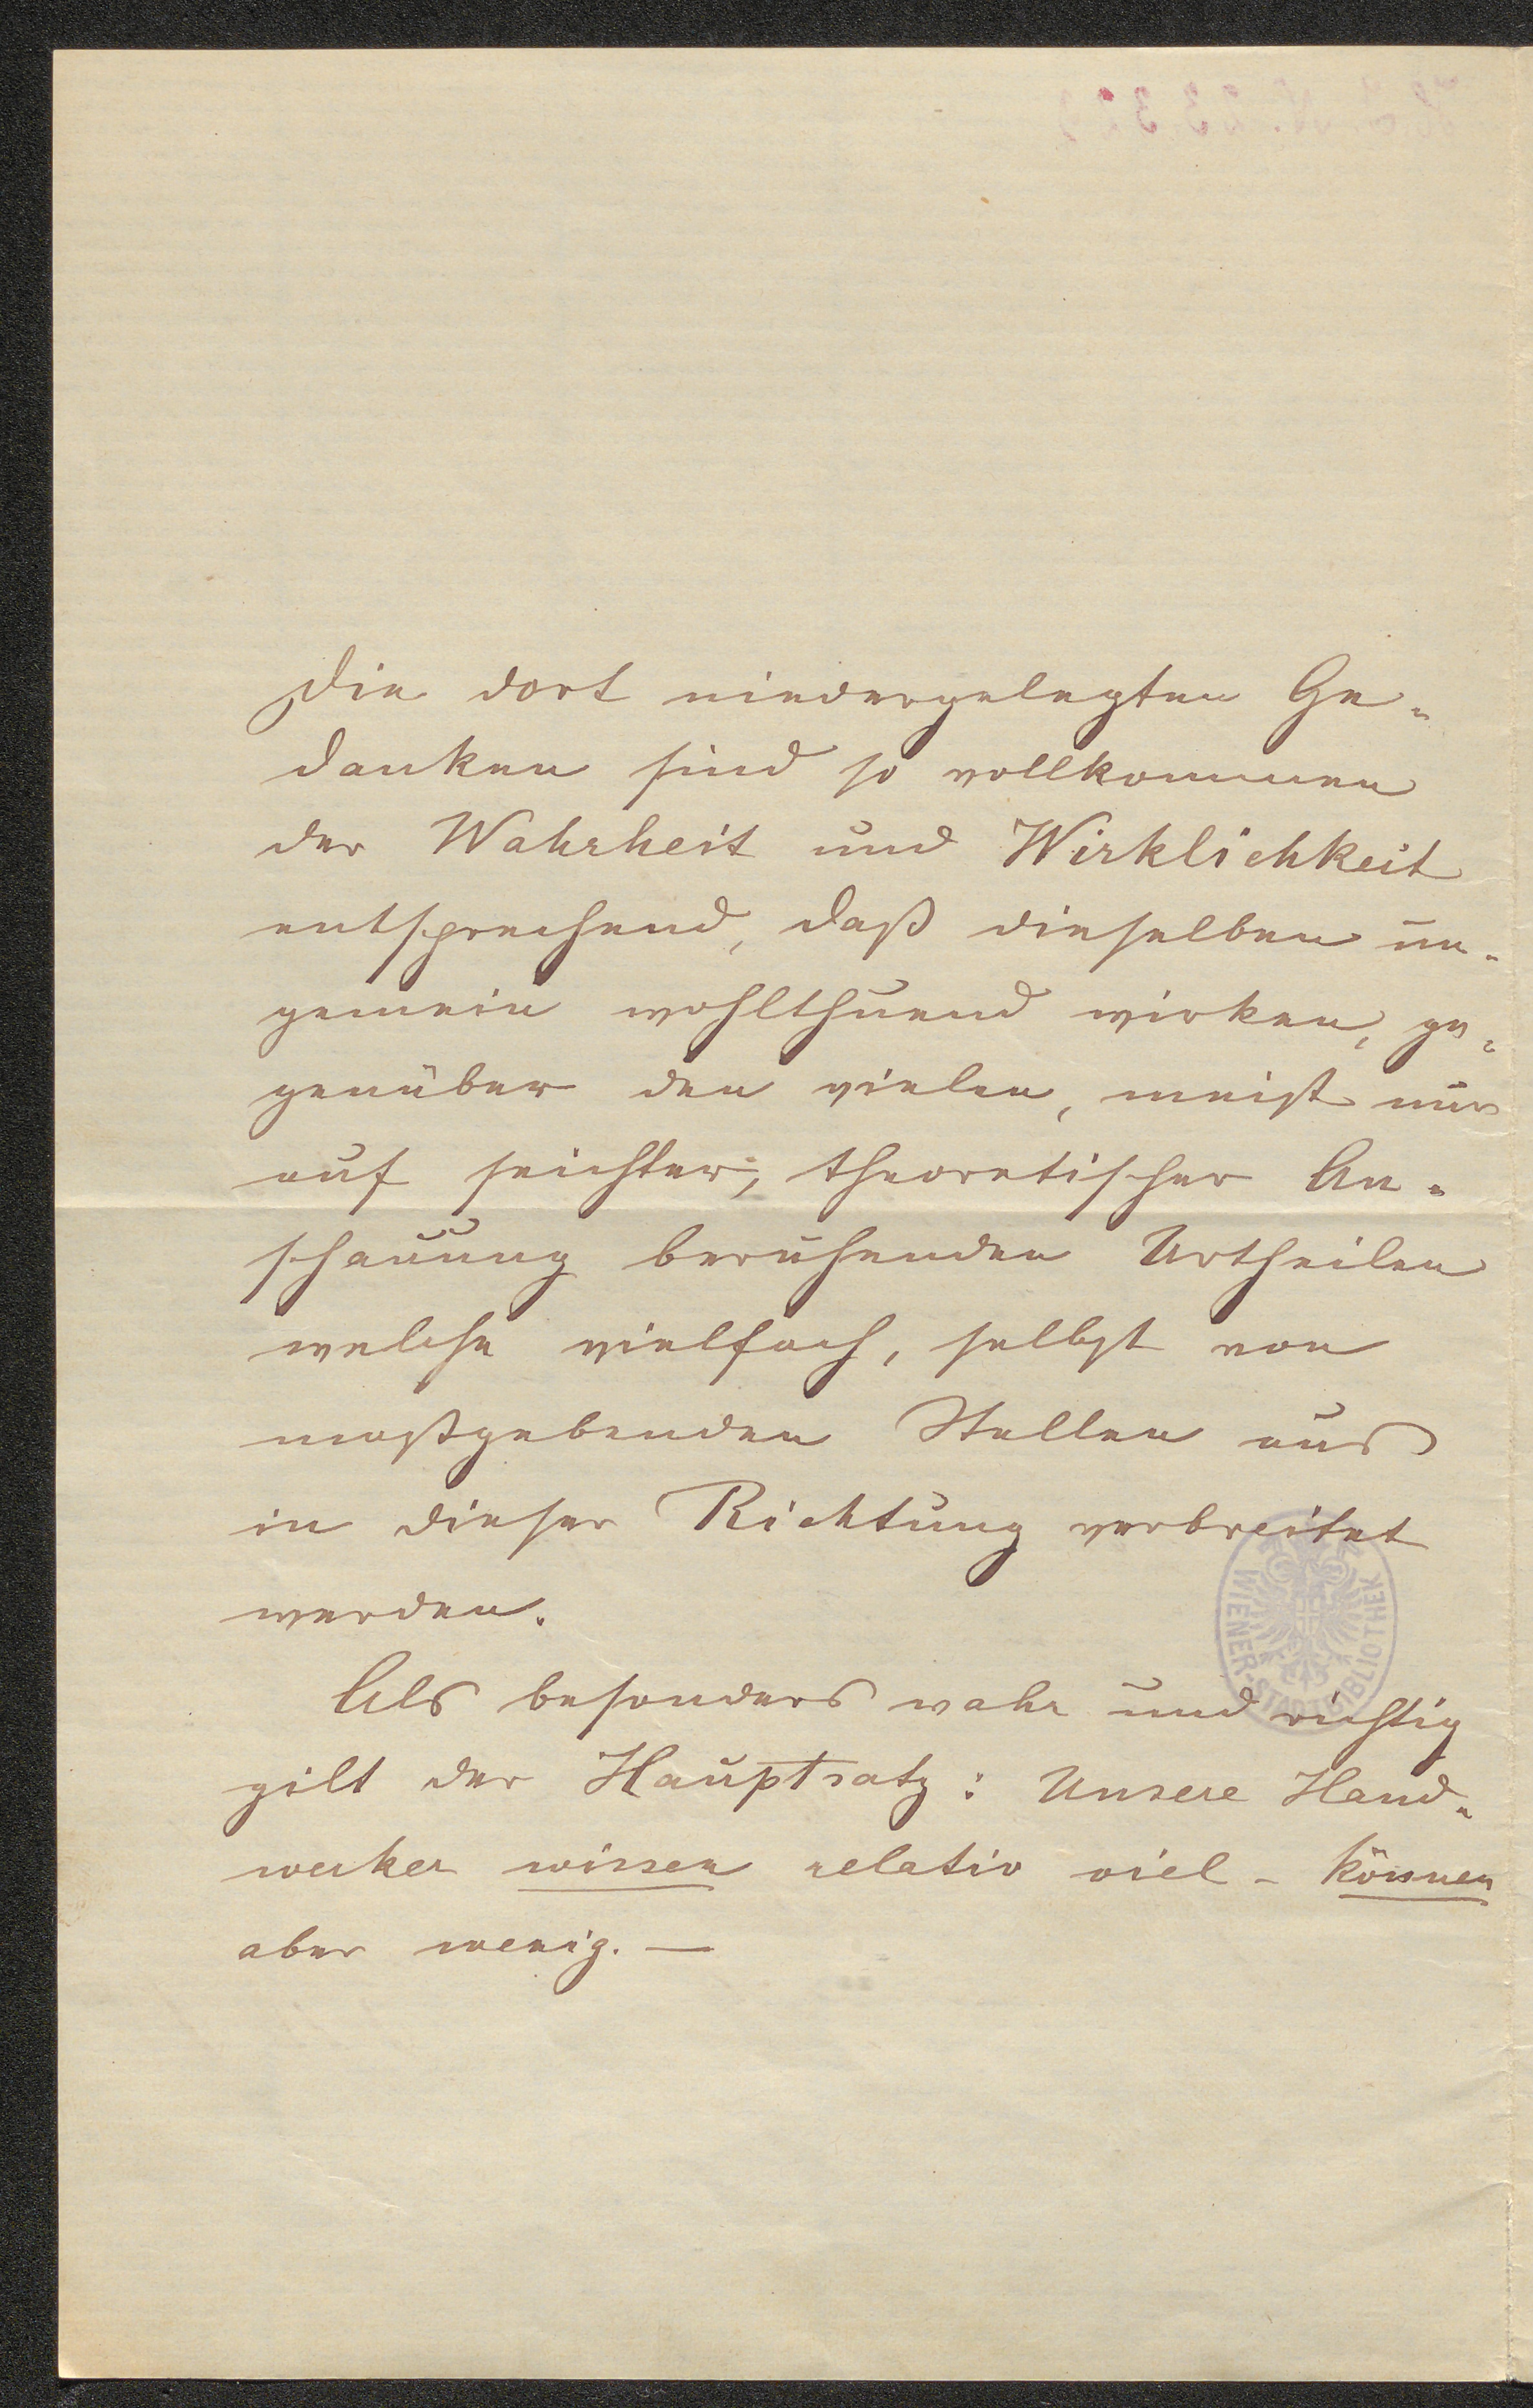 Die dort niedergelegten Ge-
danken sind so vollkommen
der Wahrheit und Wirklichkeit
entsprechend, daß dieselben un-
gemein wohlthuend wirken, ge-
genüber den vielen, meist nur
auf seichter, theoretischer An-
schauung beruhenden Urtheilen
welche vielfach, selbst von
maßgebenden Stellen aus
in dieser Richtung verbreitet
werden.
WIENER-STADTBIBLIOTHEK
Als besonders wahr und richtig
gilt der Hauptsatz: Unsere Hand-
werker wissen relativ viel - können
aber wenig. —